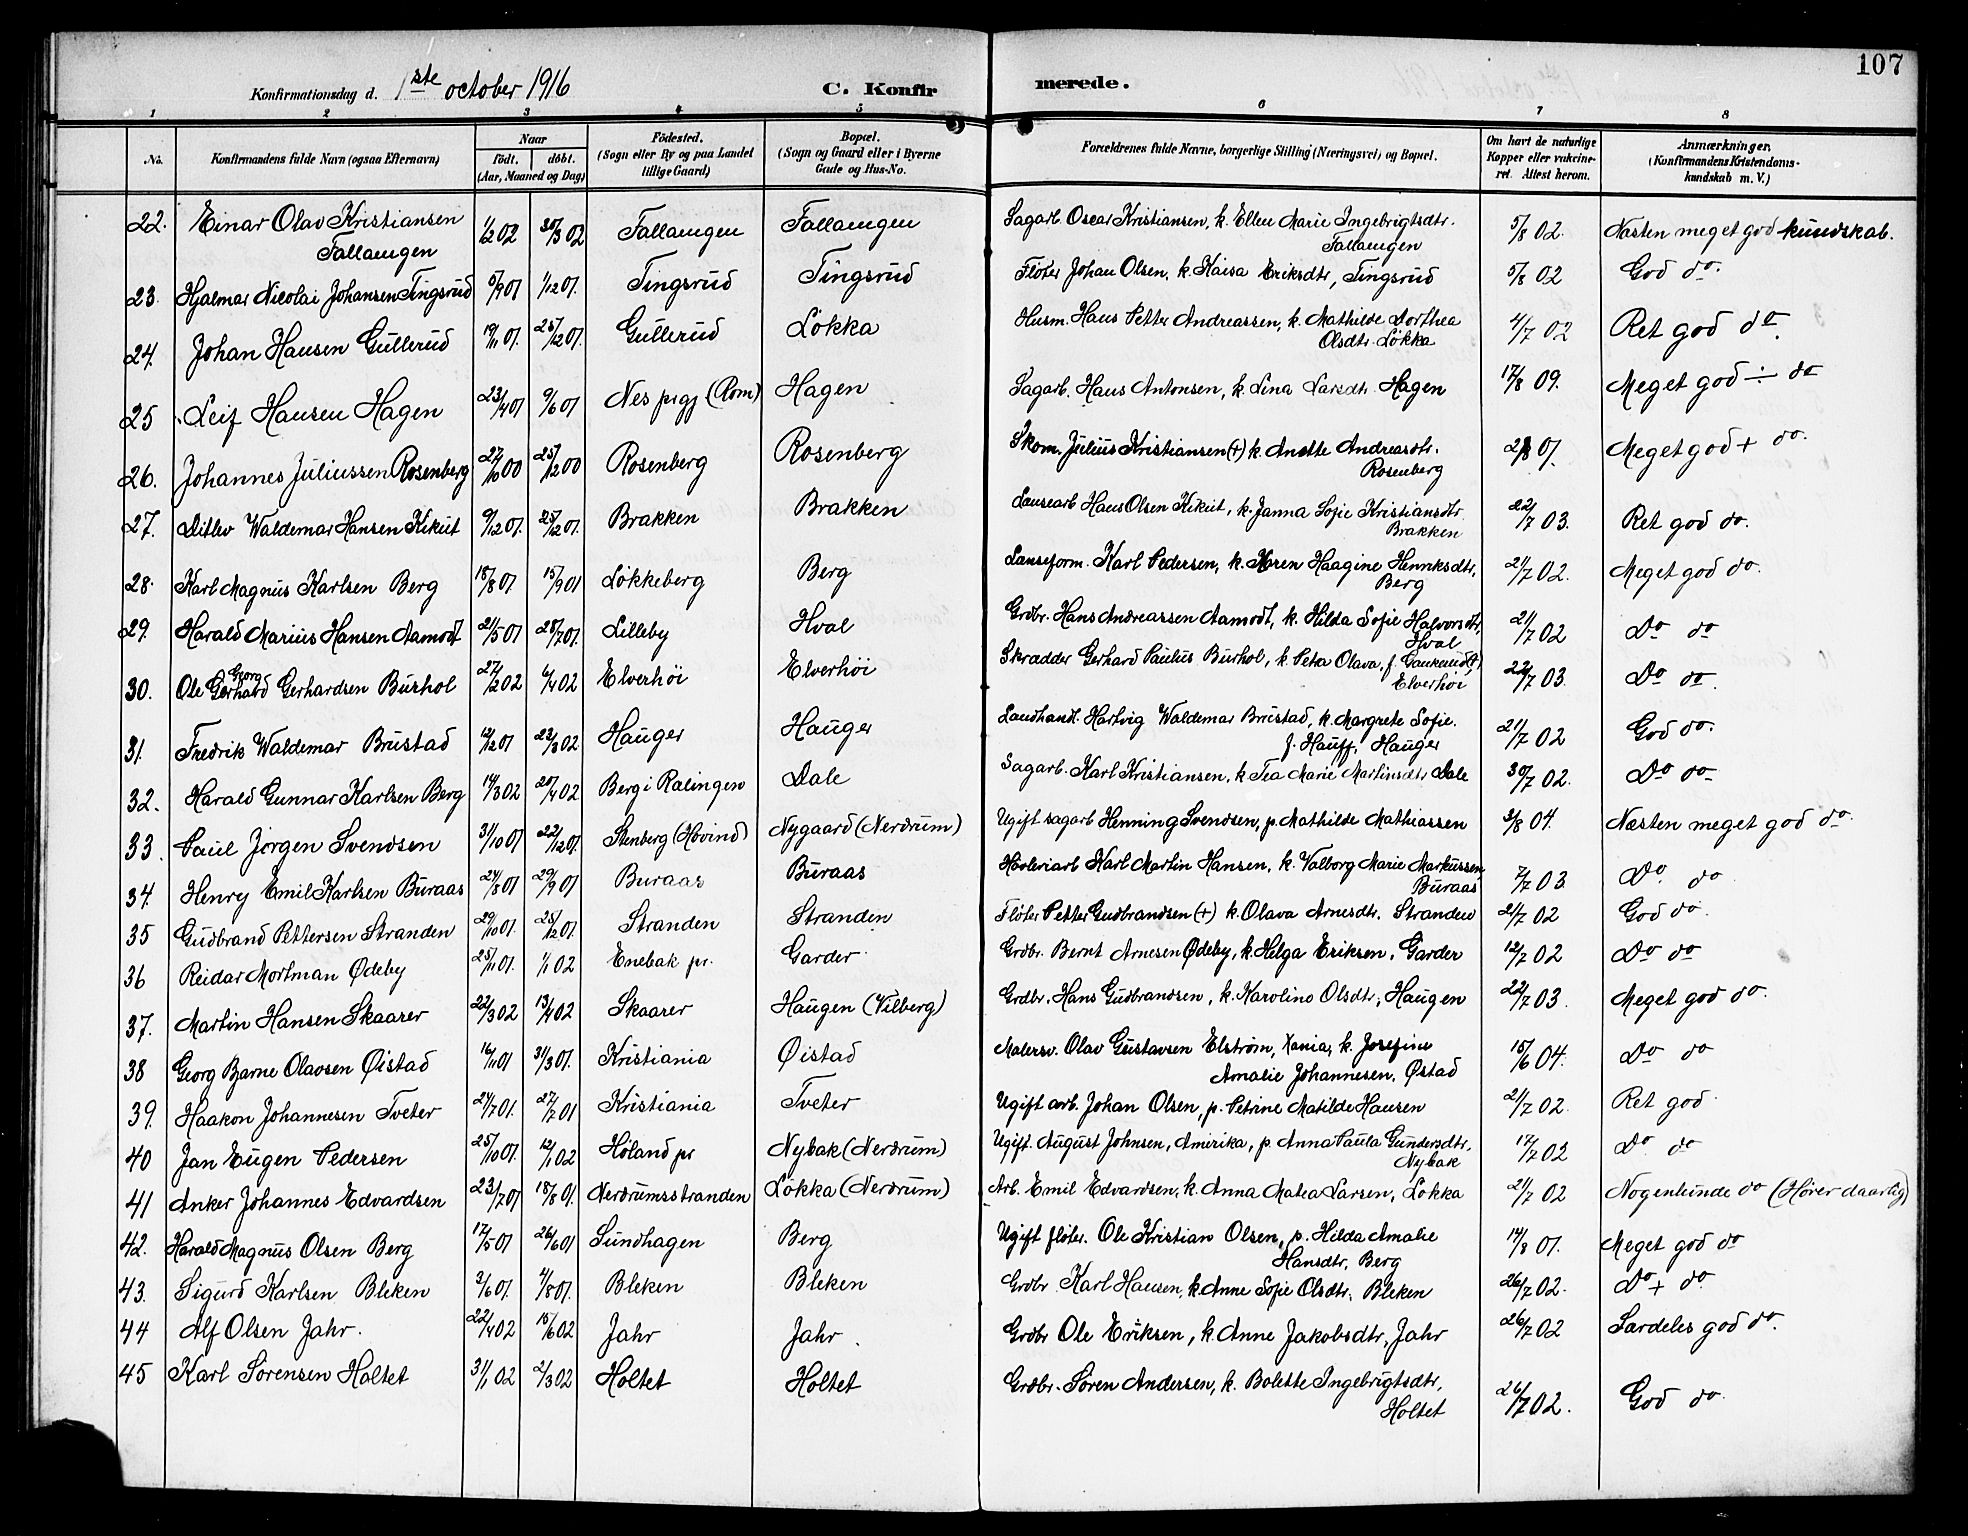 107
Konfirmationsdag d. 1ste october 1916 C. Konfirmerede.
1 2 3 4 5 6 7 8
No. Konfirmandens fulde Navn (ogsaa Efternavn) Naar født. døbt. (Aar, Maaned og Dag) Födested. (Sogn eller By og paa Landet tillige Gaard) Bopæl. (Sogn og Gaard eller i Byerne Gade og Hus-No. Forældrenes fulde Navne, borgerlige Stilling (Næringsvei) og Bopæl. Om havt de naturlige Kopper eller vaksineret. Attest herom. Anmærkninger, (Konfirmandens Kristendomskundskab m. V.)
22. Einar Olav Kristiansen Fallængen 1/2 02 30/3 02 Fallængen Fallængen Sagarb. Oscar Kristiansen, k. Ellen Marie Ingebrigtsdtr. Fallængen 5/8 02. Næsten meget god kundskab.
23. Hjalmar Nicolai Johansen Tingsrud 5/9 01 1/12 01. Tingsrud Tingsrud Fløter Johan Olsen, k. Kaisa Eriksdtr, Tingsrud 5/8 02 God do.
24. Johan Hansen Gullerud 19/11 01. 25/12 01. Gullerud Løkka Husm. Hans Petter Andreassen, k. Mathilde Dorthea Olsdtr. Løkka 4/7 02 Ret god do.
25 Leif Hansen Hagen 23/4 01 9/6 01 Nes prgj (Rom) Hagen Sagarb. Hans Antonsen, k. Lina Larsdtr. Hagen 17/8 09. Meget god ÷ do
26. Johannes Juliussen Rosenberg 27/10 00 25/12 00 Rosenberg Rosenberg Skom. Julius Kristiansen (+) k. Anette Andreasdtr. Rosenberg 2/8 01. Meget god + do.
27. Ditlev Waldemar Hansen Kikut 9/12 01. 25/12 01. Brakken Brakken Lansearb Hans Olsen Kikut, k. Janna Sofie Kristiansdtr. Brakken 22/7 03. Ret god do.
28. Karl Magnus Karlsen Berg 18/8 01 15/9 01 Løkkeberg Berg Lanseform. Karl Pedersen, k. Karen Haagine Henriksdtr, Berg 21/7 02. Meget god do.
29. Harald Marius Hansen Aamodt 21/5 01 28/7 01. Lilleby Hval Grdbr. Hans Andreassen Aamodt, k. Hilda Sofie Halvorsdtr, Hval 21/7 02 Do do
30. Ole Georg Gerhard Gerhardsen Burhol 27/2 02 6/4 02 Elverhöi Elverhöi Skrædder Gerhard Paulus Burhol, k. Petra Olava, Elverhöi 22/7 03. Do do.
31. Fredrik Waldemar Brustad 12/12 01 23/3 02 Hauger Hauger Landhandl. Hartvig Waldemar Brustad, k. Margrete Sofie. f. Hauff, Hauger 21/7 02 God do.
32. Harald Gunnar Karlsen Berg 14/3 02 20/4 02 Berg i Rælingen Dale Sagarb. Karl Kristiansen, k Tea Marie Martinsdtr Dale 30/7 02. Do do
33. Paul Jørgen Svendsen 31/10 01 22/12 01. Stenberg (Hovind) Nygaard (Nerdrum) Ugift sagarb Henning Svendsen, p. Mathilde Mathiassen 3/8 04. Næsten meget god do.
34. Henry Emil Karlsen Buraas 24/8 01 29/9 01 Buraas Buraas Høvleriarb Karl Martin Hansen, k. Valborg Marie Markussen, Buraas 7/7 03. Do. do
35 Gudbrand Pettersen Stranden 29/10 01. 25/12 01. Stranden Stranden Fløter Petter Gudbrandsen (+) k. Olava Arnesdtr. Stranden 21/7 02 God do.
36 Reidar Mortman Ødeby 25/11 01. 1/1 02 Enebak pr. Garder Grdbr. Bernt Arnesen Ødeby, k. Helga Eriksen, Garder 12/7 02 Do do
37. Martin Hansen Skaarer 22/3 02 13/4 02 Skaarer Haugen (Vilberg) Grdbr. Hans Gudbrandsen, k. Karoline Olsdtr, Haugen 22/7 03. Meget god do.
38 Georg Bjarne Olavsen Øistad 16/1 01 31/3 01. Kristiania Øistad Malersv. Olav Gustavsen Elstrøm, Xania, k. Josefine Amalie Johannesen, Østad 15/6 04. Do do
39. Haakon Johannesen Tveter 24/7 01. 27/7 01 Kristiania Tveter Ugift arb. Johan Olsen, p. Petrine Matilde Hansen 21/7 02. Ret god.
40 Jan Eugen Pedersen 25/10 01. 12/1 02 Høland pr Nybak (Nerdrum) Ugift. August Johnsen, Amerika, p. Anna Paula Gundersdtr, Nybak 17/7 02 Do do
41 Anker Johannes Edvardsen 23/7 01 18/8 01. Nerdrumsstranden Løkka (Nerdrum) Arb. Emil Edvardsen, k. Anna Matea Larsen, Løkka 21/7 02 Nogenlunde do (Hører daarlig)
42. Harald Magnus Olsen Berg 17/5 01 26/6 01 Sundhagen Berg Ugift fløter. Ole Kristian Olsen, p. Hilda Amalie Hansdtr, Berg 14/8 01. Meget god do
43. Sigurd Karlsen Bleken 3/6 01. 4/8 01. Bleken Bleken Grdbr Karl Hansen, k. Anne Sofie Olsdtr, Bleken 26/7 02. Do + do
44 Alf Olsen Jahr. 22/4 02 15/6 02 Jahr Jahr. Grdbr Ole Eriksen, k. Anne Jakobsdtr, Jahr 26/7 02 Særdeles god do.
45 Karl Sørensen Holtet 31/1 02 2/3 02 Holtet Holtet Grdbr. Søren Andersen, k. Bolette Ingebrigtsdtr, Holtet 26/7 02. God do.